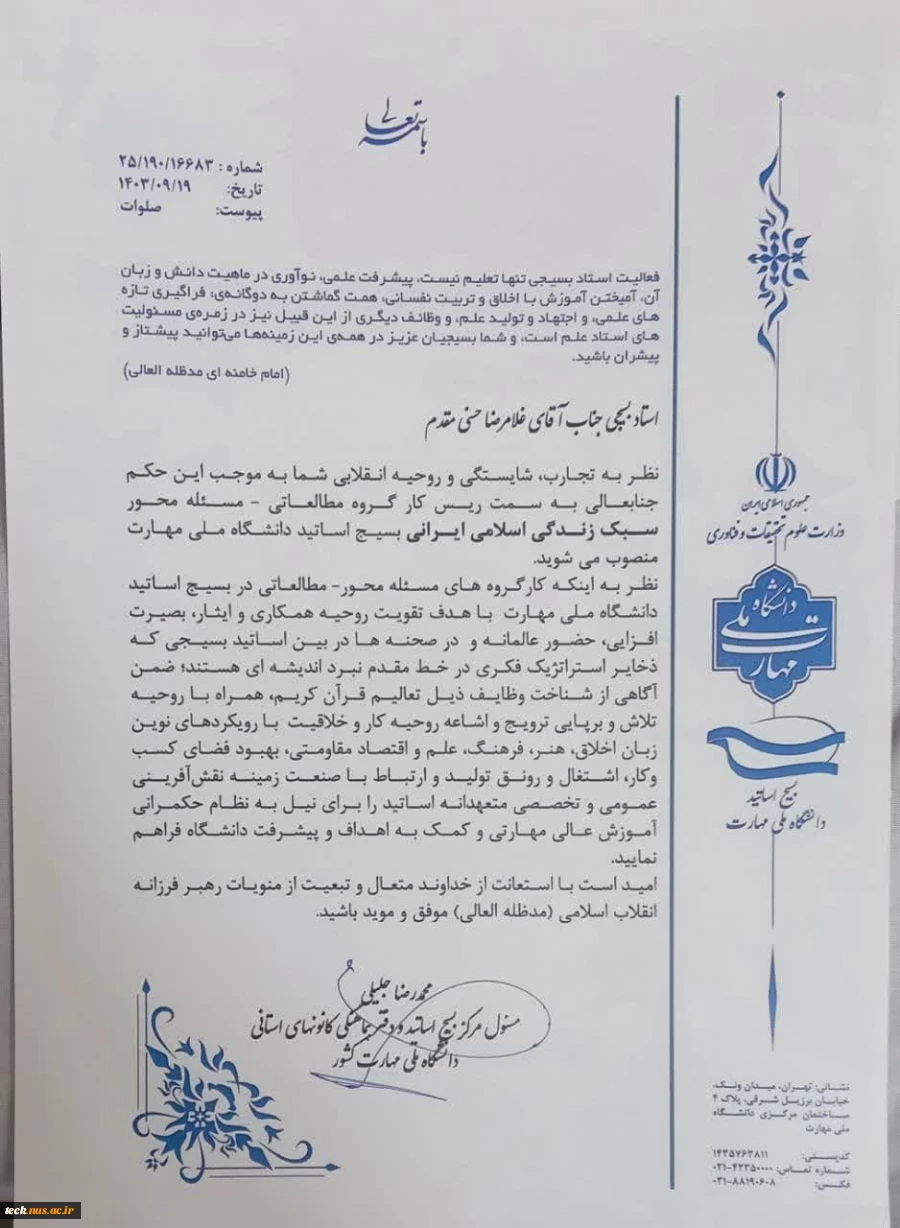 باسمه تعالی
شماره : ۲۵/۱۹۰/۱۶۶۸۳
تاریخ: ۱۴۰۳/۰۹/۱۹
پیوست: صلوات
فعالیت استاد بسیجی تنها تعلیم نیست، پیشرفت علمی، نوآوری در ماهیت دانش و زبان
آن، آمیختن آموزش با اخلاق و تربیت نفسانی، همت گماشتن به دوگانه‌ی: فراگیری تازه
های علمی، و اجتهاد و تولید علم، و وظائف دیگری از این قبیل نیز در زمره‌ی مسئولیت
های استاد علم است، و شما بسیجیان عزیز در همه‌ی این زمینه‌ها می‌توانید پیشتاز و
پیشران باشید.
(امام خامنه ای مدظله العالی)
استاد بسیجی جناب آقای غلامرضا حسنی مقدم
نظر به تجارب، شایستگی و روحیه انقلابی شما به موجب این حکم
جنابعالی به سمت ریس کار گروه مطالعاتی - مسئله محور
سبک زندگی اسلامی ایرانی بسیج اساتید دانشگاه ملی مهارت
منصوب می شوید.
نظر به اینکه کارگروه های مسئله محور- مطالعاتی در بسیج اساتید
دانشگاه ملی مهارت با هدف تقویت روحیه همکاری و ایثار، بصیرت
افزایی، حضور عالمانه و در صحنه ها در بین اساتید بسیجی که
ذخایر استراتژیک فکری در خط مقدم نبرد اندیشه ای هستند؛ ضمن
آگاهی از شناخت وظایف ذیل تعالیم قرآن کریم، همراه با روحیه
تلاش و برپایی ترویج و اشاعه روحیه کار و خلاقیت با رویکردهای نوین
زبان اخلاق، هنر، فرهنگ، علم و اقتصاد مقاومتی، بهبود فضای کسب
وکار، اشتغال و رونق تولید و ارتباط با صنعت زمینه نقش‌آفرینی
عمومی و تخصصی متعهدانه اساتید را برای نیل به نظام حکمرانی
آموزش عالی مهارتی و کمک به اهداف و پیشرفت دانشگاه فراهم
نمایید.
امید است با استعانت از خداوند متعال و تبعیت از منویات رهبر فرزانه
انقلاب اسلامی (مدظله العالی) موفق و موید باشید.
محمدرضا جلیلی
مسئول مرکز بسیج اساتید و دفتر هماهنگی کانونهای استانی
دانشگاه ملی مهارت کشور
جمهوری اسلامی ایران
وزارت علوم تحقیقات و فناوری
دانشگاه
ملی
مهارت
بسیج اساتید
دانشگاه ملی مهارت
نشانی: تهران، میدان ونک،
خیابان برزیل شرقی، پلاک ۴
ساختمان مرکزی دانشگاه
ملی مهارت
کدپستی: ۱۴۳۵۷۶۳۸۱۱
شماره تماس: ۰۲۱-۴۲۳۵۰۰۰۰
فکس: ۰۲۱-۸۸۱۹۰۶۰۸
tech.nus.ac.ir